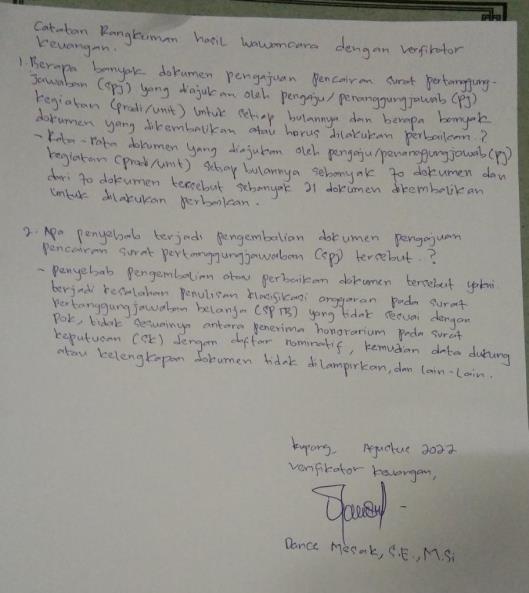 Catatan Rangkuman hasil wawancara dengan verfikator
keuangan.
1. Berapa banyak dokumen pengajuan pencairan surat pertanggung-
jawaban (spj) yang diajukan oleh pengaju/penanggungjawab (pj)
kegiatan (prodi/unit) untuk setiap bulannya dan berapa banyak
dokumen yang dikembalikan atau harus dilakukan perbaikan.?
- Rata-Rata dokumen yang diajukan oleh pengaju/penanggungjawab (pj)
kegiatan (prodi/unit) setiap bulannya sebanyak 70 dokumen dan
dari 70 dokumen tersebut sebanyak 21 dokumen dikembalikan
untuk dilakukan perbaikan.
2. Apa penyebab terjadi pengembalian dokumen pengajuan
pencairan surat pertanggungjawaban (spj) tersebut.?
- penyebab pengembalian atau perbaikan dokumen tersebut yakni
terjadi kesalahan penulisan klasifikasi anggaran pada surat
pertanggungjawaban belanja (SPTB) yang tidak sesuai dengan
POK, tidak sesuainya antara penerima honorarium pada surat
keputusan (SK) dengan daftar nominatif, kemudian data dukung
atau kelengkapan dokumen tidak dilampirkan, dan lain-lain.
Kupang, Agustus 2022
Verifikator keuangan,
Dance Mesak, S.E., M.Si